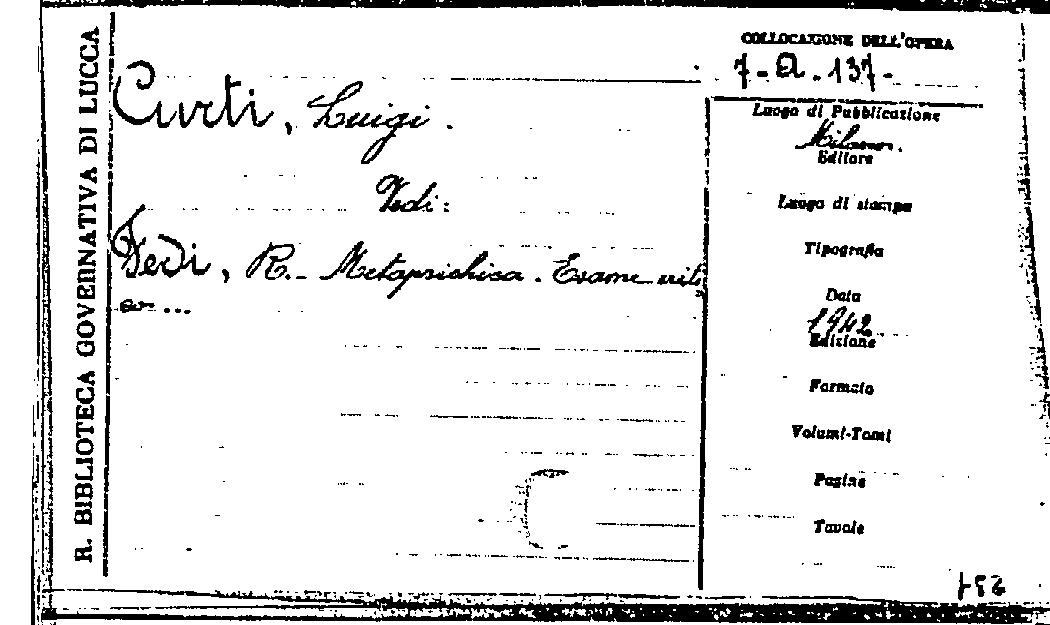 R. BIBLIOTECA GOVERNATIVA DI LUCCA
COLLOCAZIONE DELL'OPERA
7 - Q. 137 -
Curti, Luigi.
Vedi:
Fedi, R. - Metapsichica. Esame criti
co ...
Luogo di Pubblicazione
Milano.
Editore
Luogo di stampa
Tipografia
Data
1942
Edizione
Formato
Volumi-Tomi
Pagine
Tavole